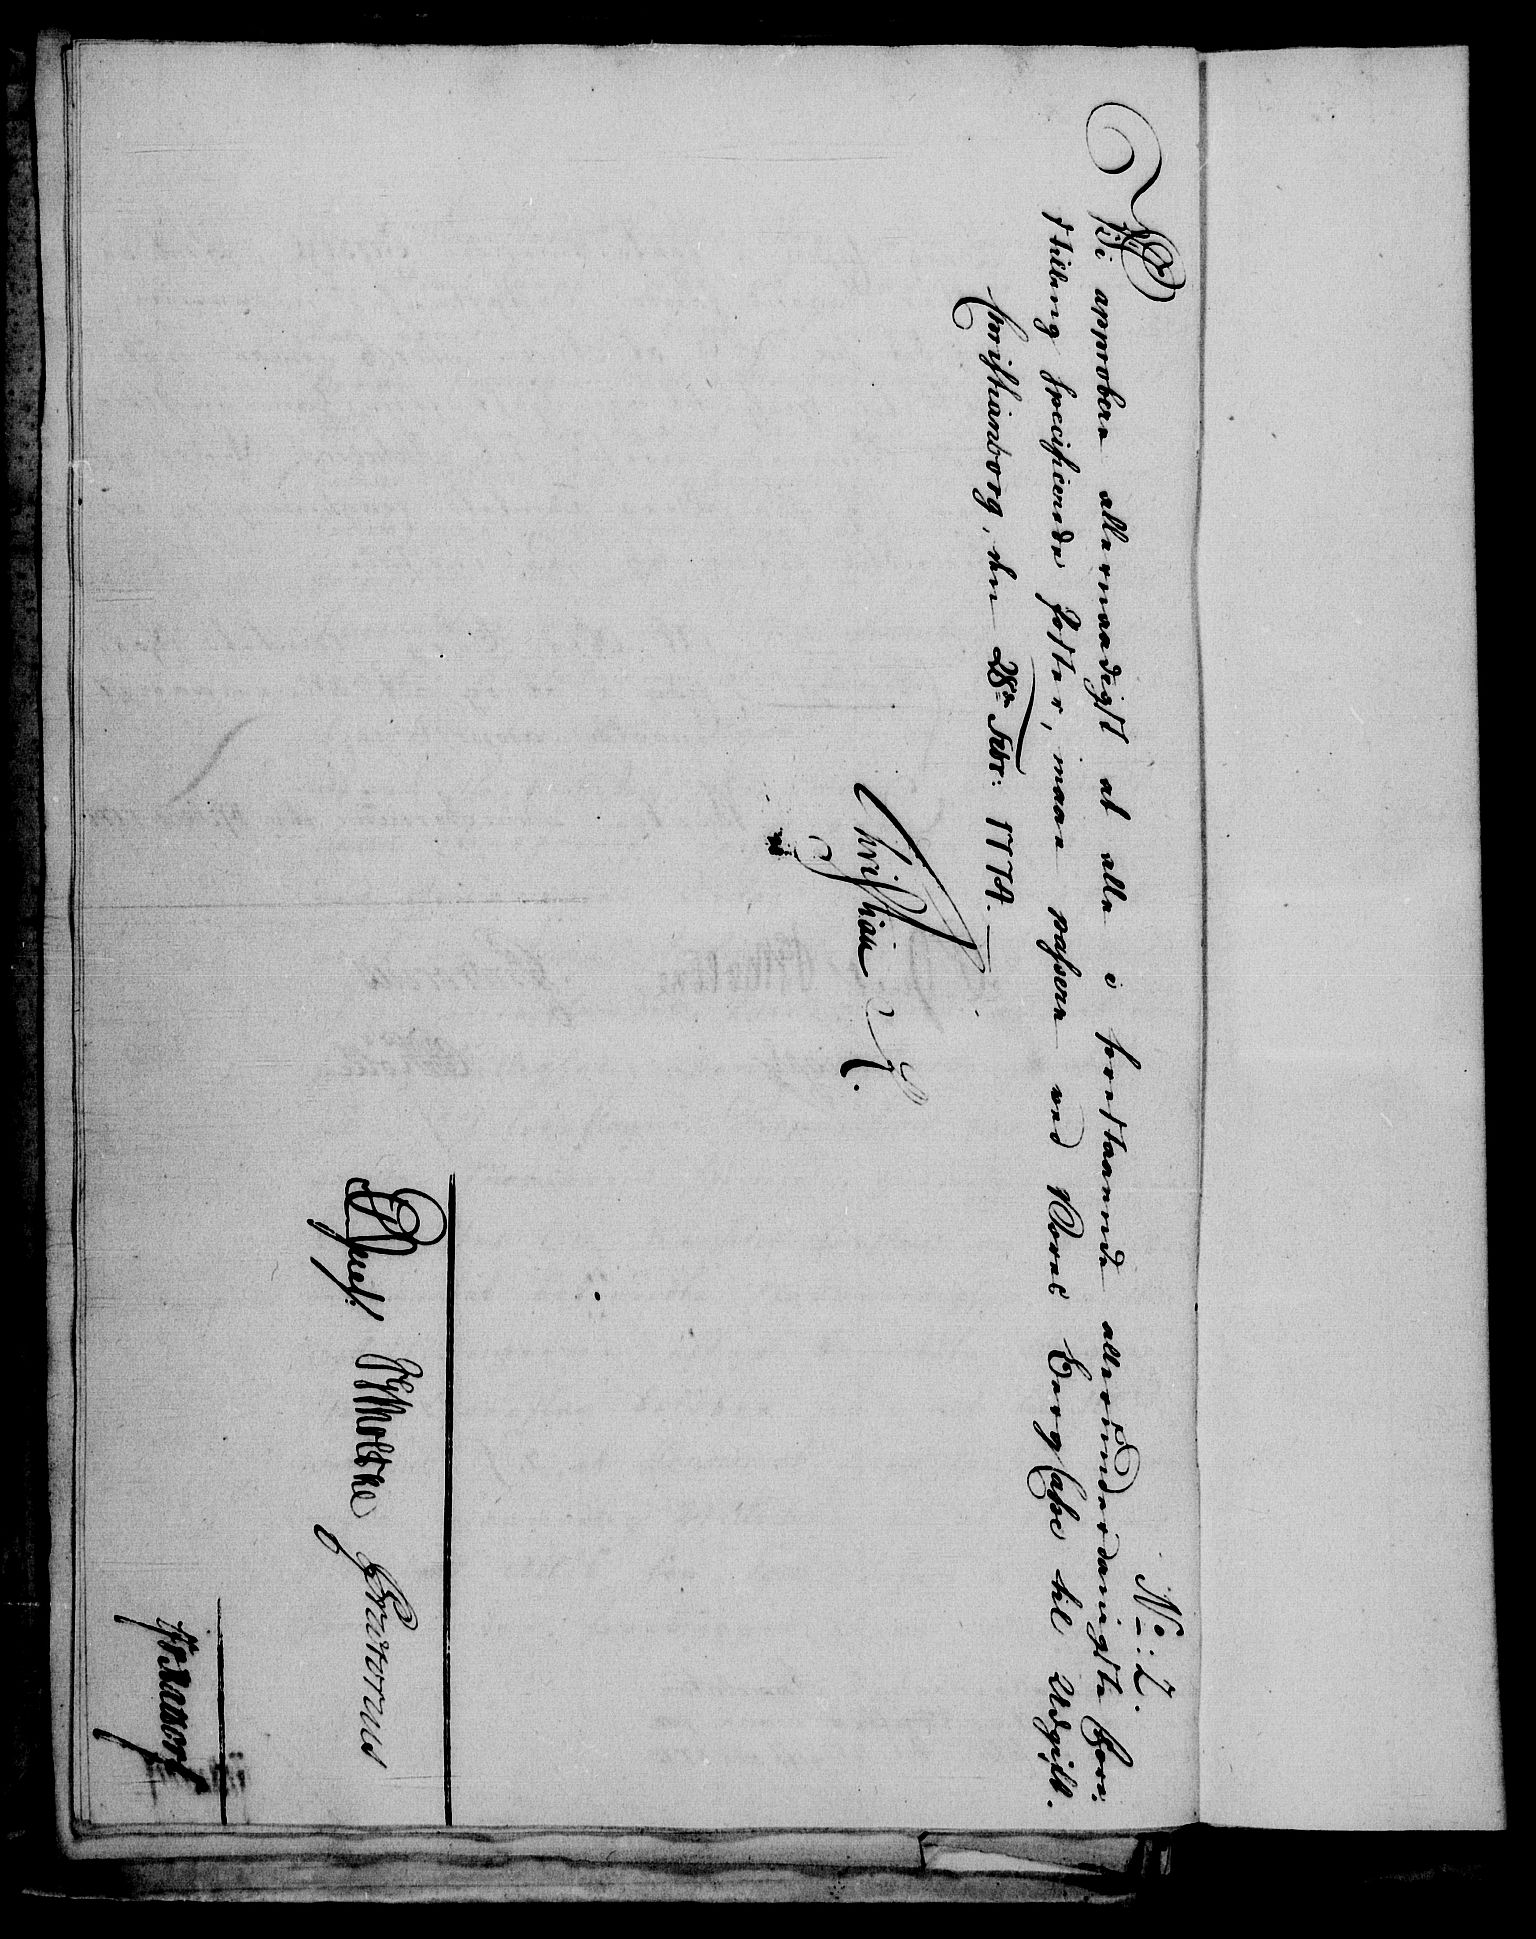 No: 2.
Vi approbere allernaadigst at alle i forestaaende allerunderdanigste Fore-
stilling specificerede Poster, maae passere ved Vores Berg Casse til Udgift.
Christiansborg, den 28de Febr: 1774.
Christian R.
JGMoltke